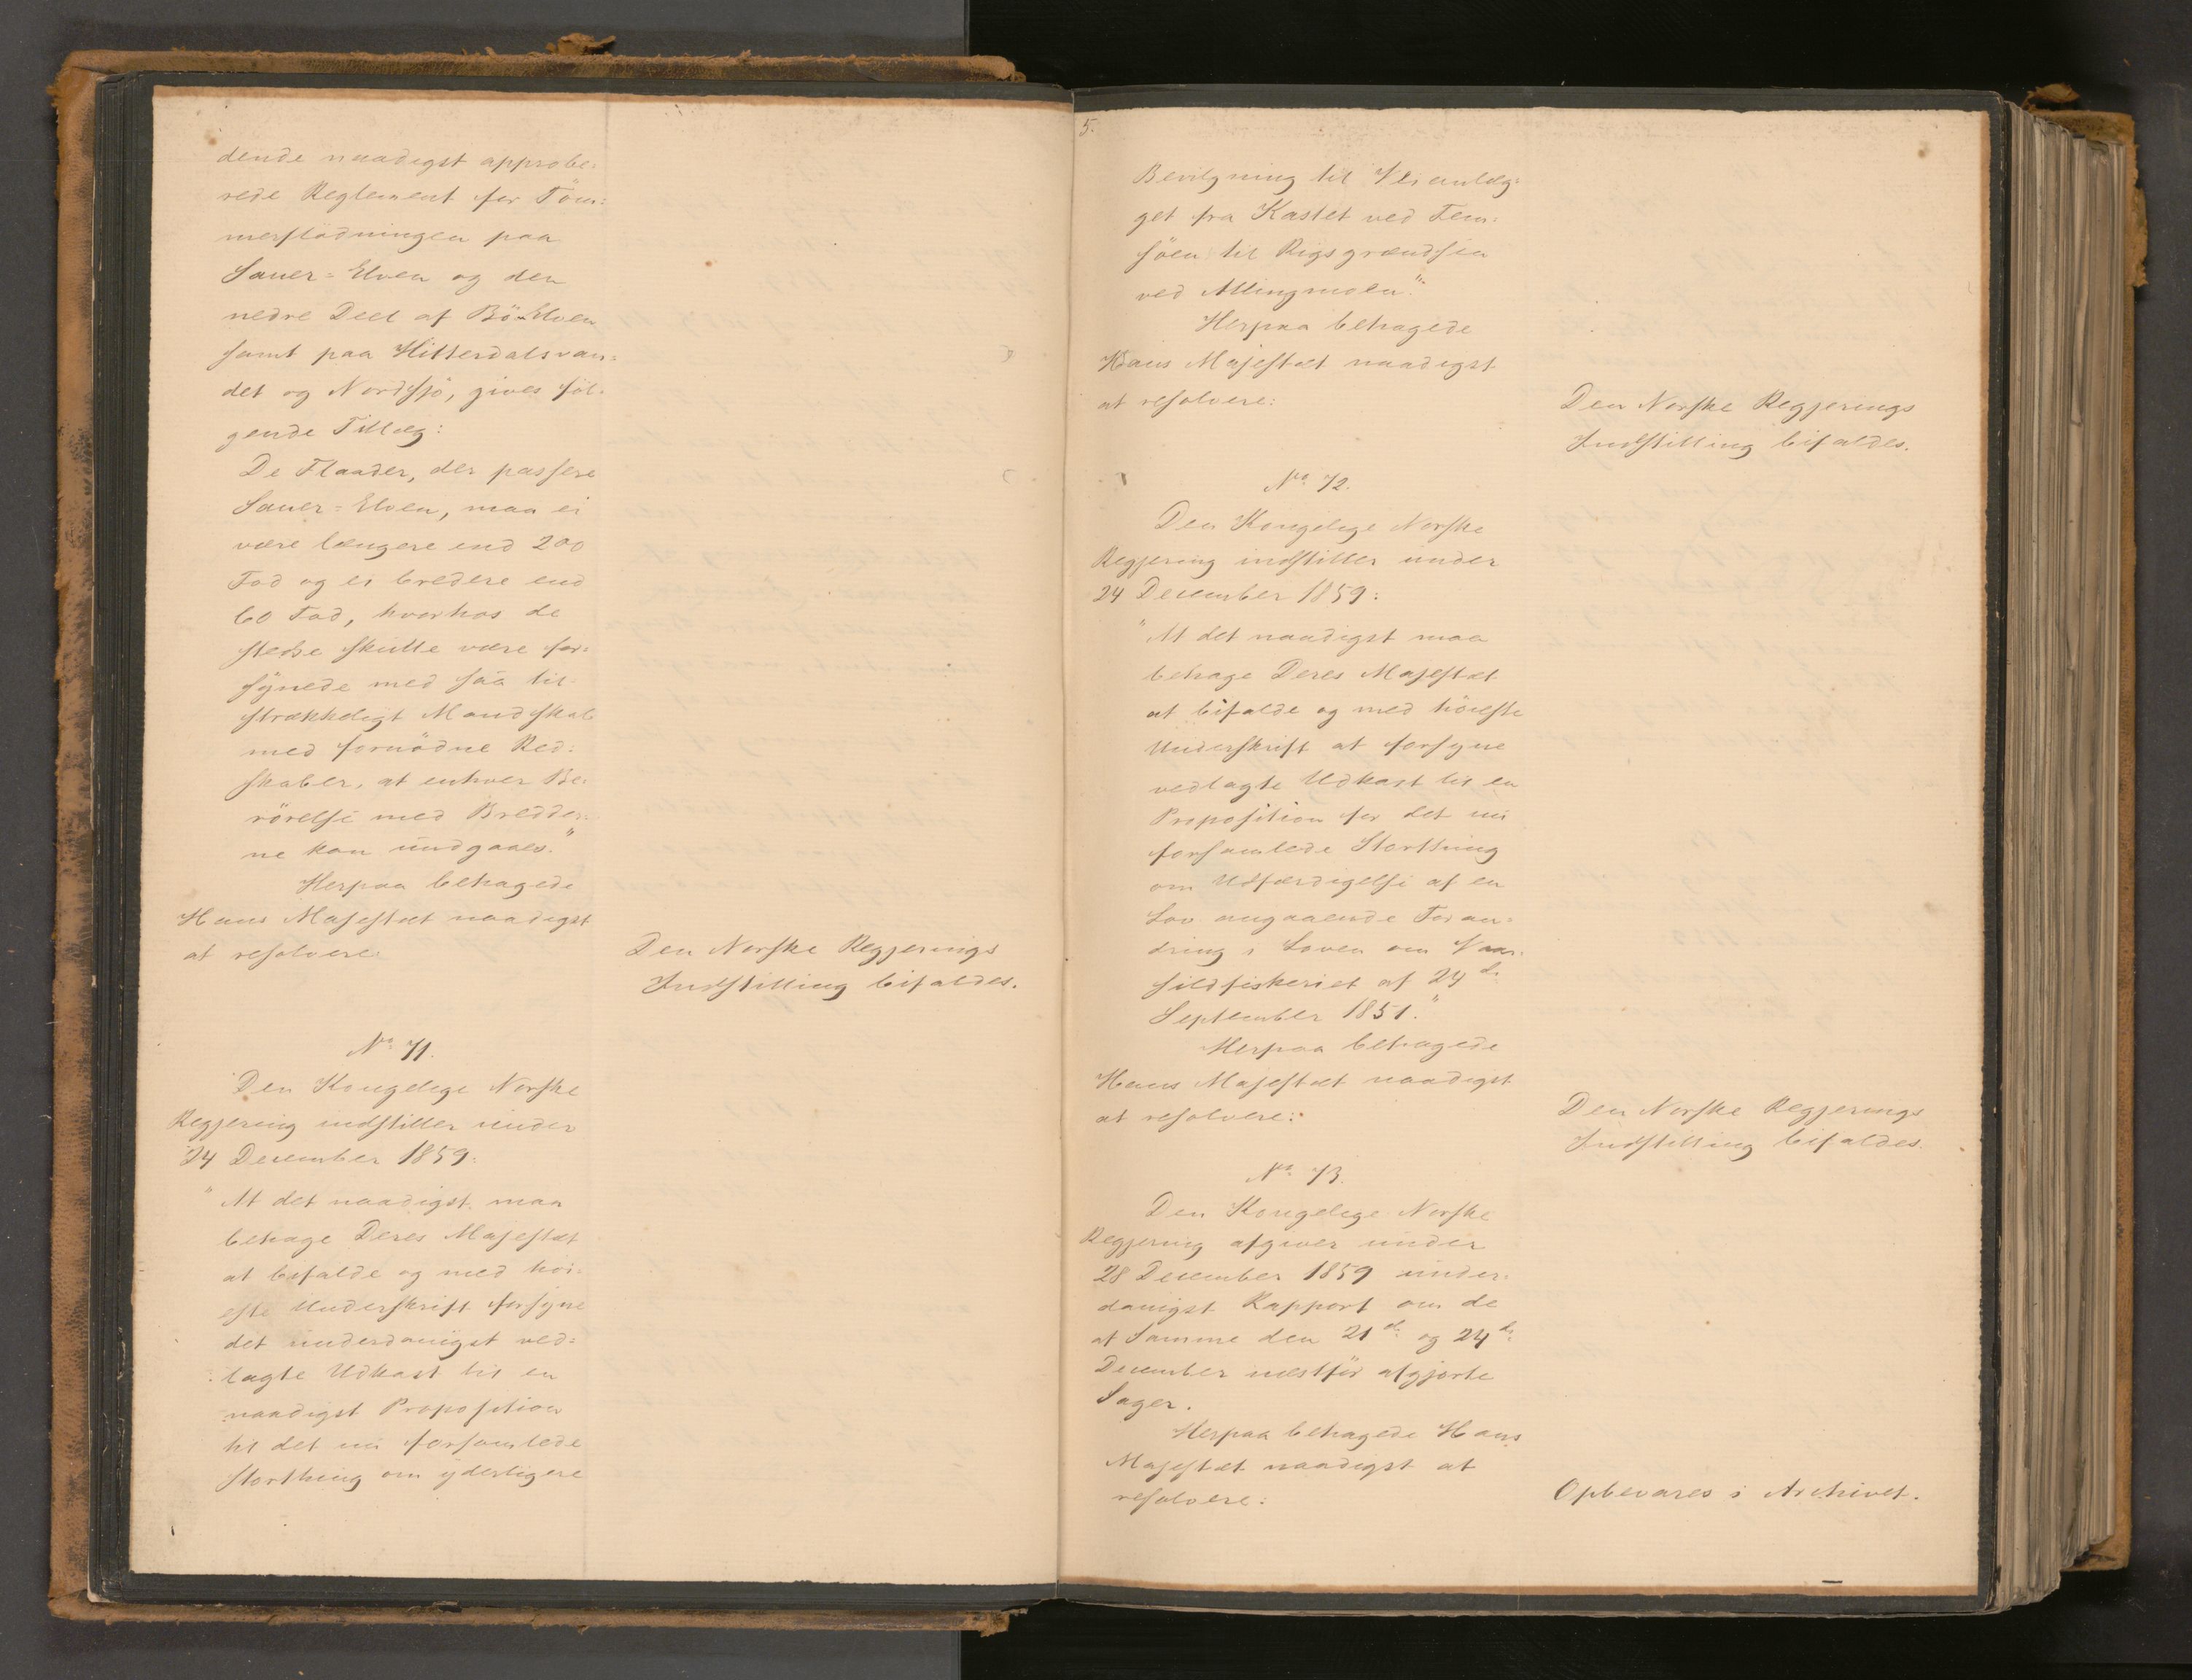 dende naadigst approbe-
rede Reglement for Töm-
merflödningen paa
Sauer-Elven og den
nedre Deel af Bö-Elven
samt paa Hitterdalsvan-
det og Nordsjö, gives föl-
gende Tillæg:
De Flaader, der passere
Sauer-Elven, maa ei
være længere end 200
Fod og ei bredere end
60 Fod, hvorhos de
stedse skulle være for-
synede med saa til-
strækkeligt Mandskab
med fornödne Red-
skaber, at enhver Be-
rörelse med Bredder-
ne kan undgaaes."
Herpaa behagede
Hans Majestæt naadigst
at resolvere:
Den Norske Regjerings
Indstilling bifaldes.
No 71.
Den Kongelige Norske
Regjering indstiller under
24 December 1859:
"At det naadigst maa
behage Deres Majestæt
at bifalde og med höi-
este Underskrift forsyne
det underdanigst ved-
lagte Udkast til en
naadigst Proposition
til det nu forsamlede
Storthing om yderligere
5.
Bevilgning til Veianlæg-
get fra Kastet ved Fem-
söen til Rigsgrændsen
ved
Herpaa behagede
Hans Majestæt naadigst
at resolvere:
Den Norske Regjerings
Indstilling bifaldes.
No 72.
Den Kongelige Norske
Regjering indstiller under
24 December 1859:
"At det naadigst maa
behage Deres Majestæt
at bifalde og med höieste
Underskrift at forsyne
vedlagte Udkast til en
Proposition for det nu
forsamlede Storthing
om Udfærdigelse af en
Lov angaaende Foran-
dring i Loven om Vaar-
sildfiskeriet af 24de
September 1851."
Herpaa behagede
Hans Majestæt naadigst
at resolvere:
Den Norske Regjerings
Indstilling bifaldes.
No 73.
Den Kongelige Norske
Regjering afgiver under
28 December 1859 under-
danigst Rapport om de
af Samme den 21de og 24de
December næstför afgjorte
Sager.
Herpaa behagede Hans
Majestæt naadigst at
resolvere:
Opbevares i Archivet.